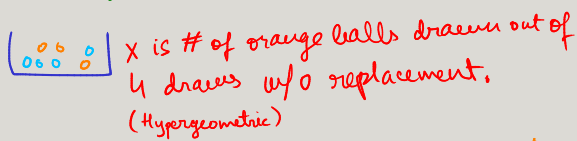 X is # of orange balls drawn out of
4 draws w/o replacement.
(Hypergeometric)